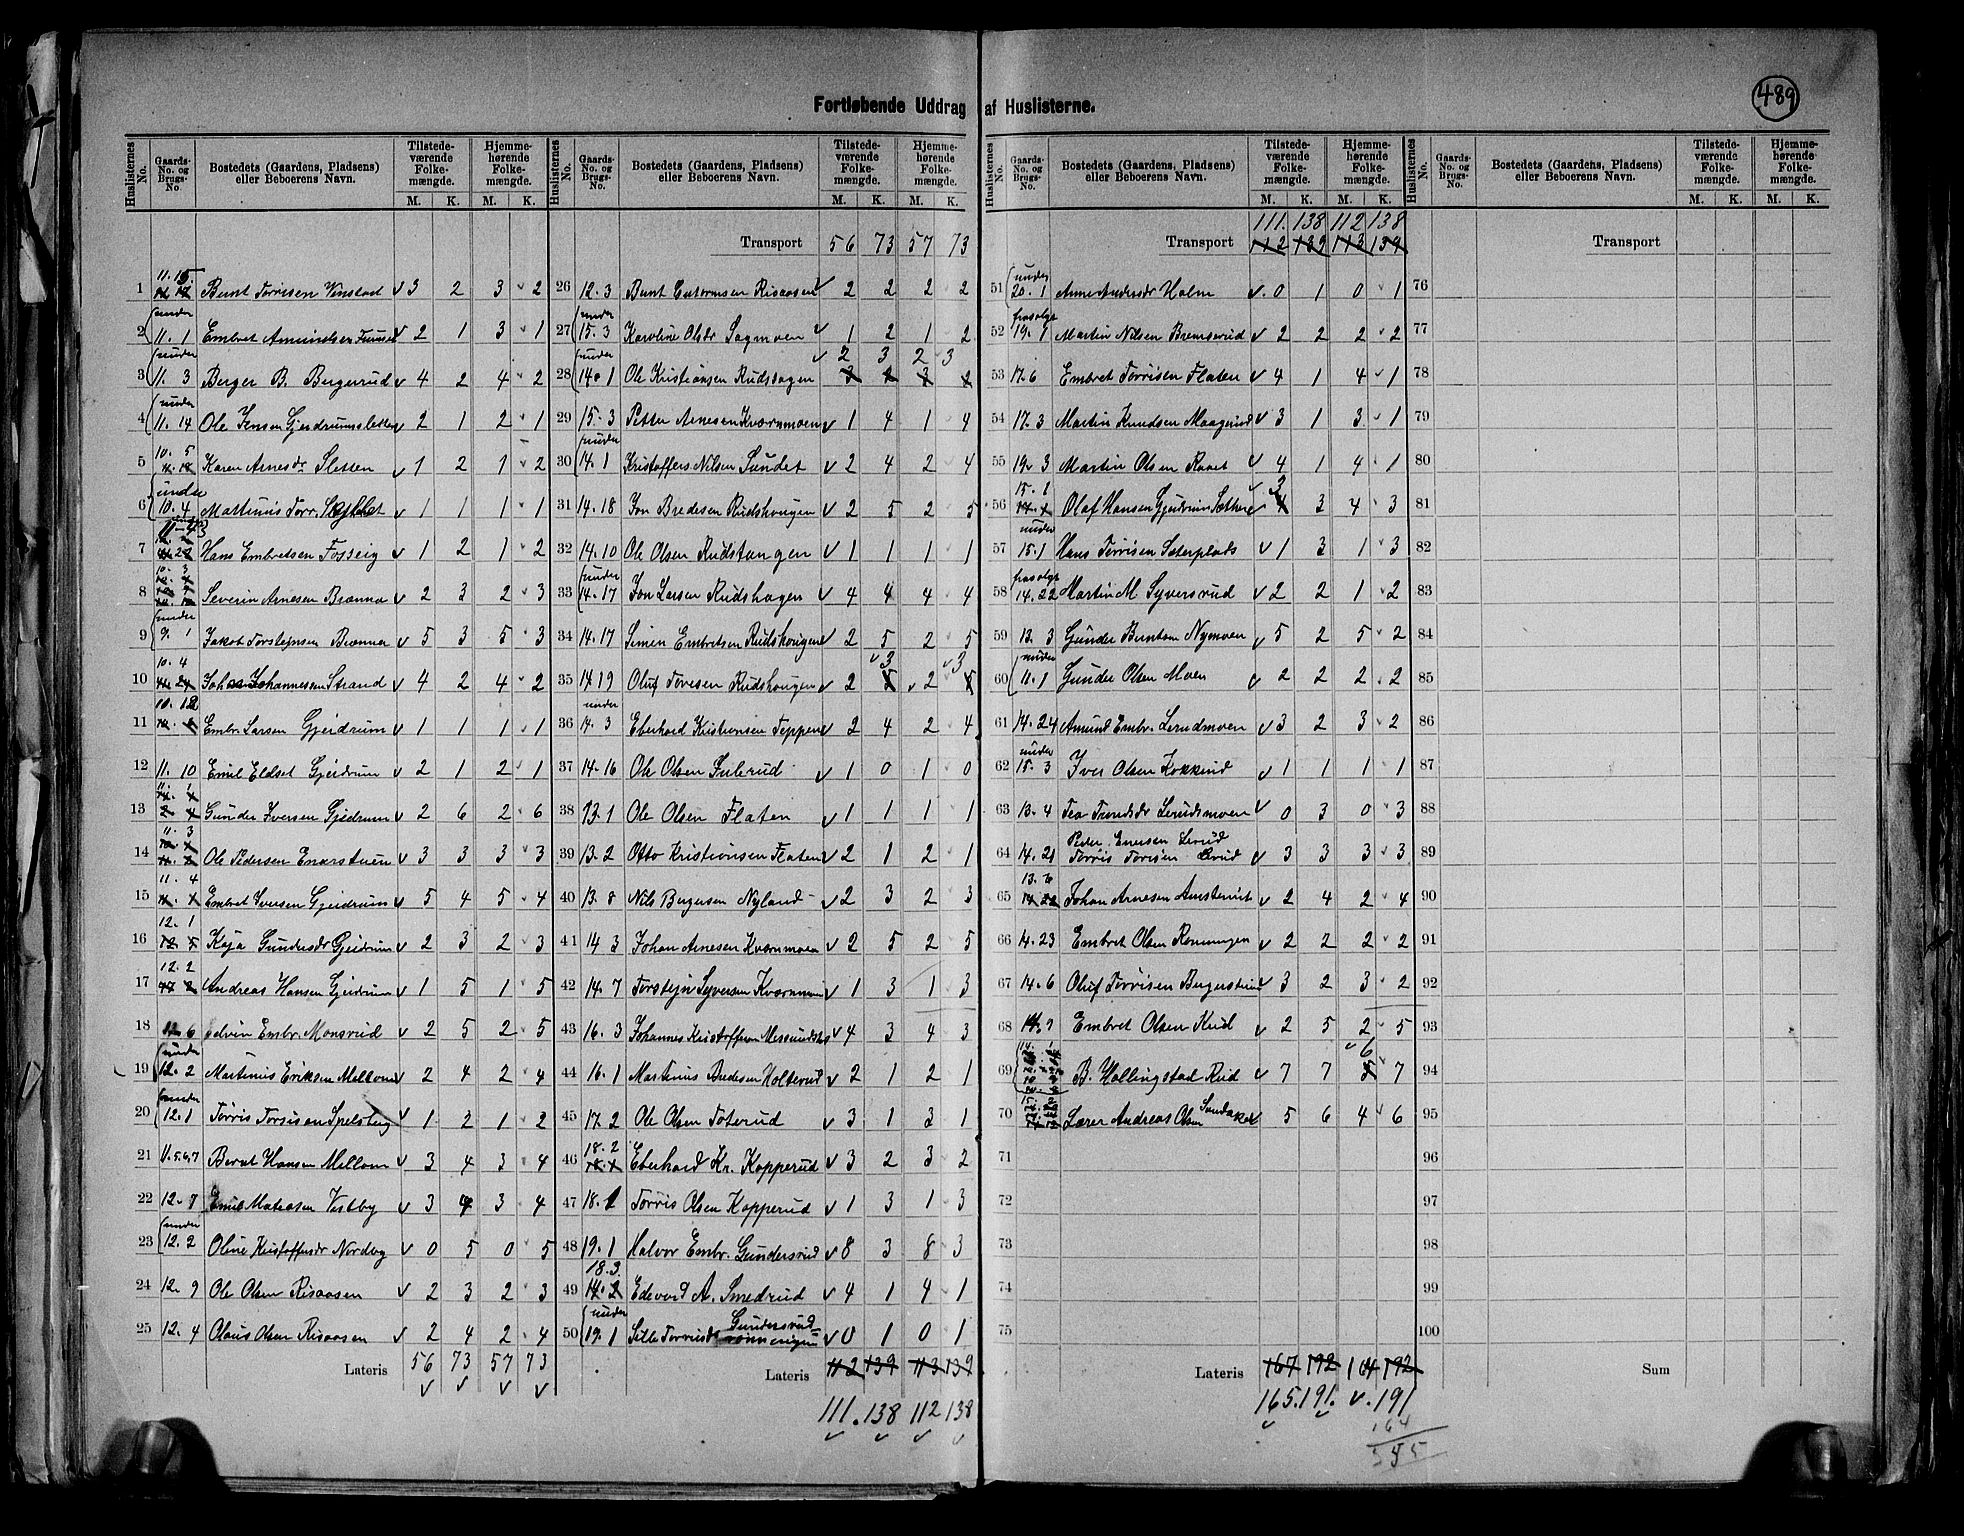 489
Fortløbende Uddrag af Huslisterne.
Huslisternes No. Gaards-No. og Brugs-No. Bostedets (Gaardens, Pladsens) eller Beboerens Navn. Tilstede-værende Folke-mængde. M. K. Hjemme-hørende Folke-mængde. M. K.
1 11. 15 Bunt Torrisen Vinstad 3 2 3 2
2 under 11. 1 Embret Amundsen 2 1 3 1
3 under 11. 3 Berger B. Bergerud 4 2 4 2
4 under 11. 14 Ole Jensen Gjerdrumsletten 2 1 2 1
5 10. 5 Karen Arnesdr Sletten 1 2 1 2
6 under 10. 4 Martinus Torr. 1 1 1 1
7 Hans Embretsen Fosseig 1 2 1 2
8 10. 3 Severin Arnesen Brænna 2 3 2 3
9 under 9. 1 Jakob Torstejnsen Brænna 5 3 5 3
10 10. 4 Johannessen Strand 4 2 4 2
11 10. 12 Embr. Larsen Gjerdrum 1 1 1 1
12 11. 10 Emil Eldset Gjerdrum 2 1 2 1
13 11. 1 Gunder Iversen Gjerdrum 2 6 2 6
14 11. 3 Ole Pedersen Enerstuen 3 3 3 3
15 11. 4 Embret Iversen Gjerdrum 5 4 5 4
16 12. 1 Kaja Gundersdr Gjerdrum 2 3 2 3
17 12. 2 Andreas Hansen Gjerdrum 1 5 1 5
18 12. 6 Edvin Embr. Monsrud 2 5 2 5
19 under 12. 2 Martinus Eriksen Mellom 2 4 2 4
20 under 12. 1 Torris Torsisen Spelsberg 1 2 1 2
21 11. 5. 6, 7 Bernt Hansen Mellom 3 4 3 4
22 12. 7 Emil Mateasen Vestby 3 4 3 4
23 under 12. 2 Oline Kristoffersdr Nordby 0 5 0 5
24 12. 9 Ole Olsen Risaasen 2 3 2 3
25 12. 4 Olaus Olsen Risaasen 2 4 2 4
Lateris 56 73 57 73
Huslisternes No. Gaards-No. og Brugs-No. Bostedets (Gaardens, Pladsens) eller Beboerens Navn. Tilstede-værende Folke-mængde. M. K. Hjemme-hørende Folke-mængde. M. K.
Transport 56 73 57 73
26 12. 3 Bunt Gutormsen Risaasen 2 2 2 2
27 under 15. 3 Karoline Olsdr Sagmoen 1 2 1 2
28 under 14. 1 Ole Kristiansen Rudshagen 2 3 2 3
29 15. 3 Petter Arnesen Kværnmoen 1 4 1 4
30 under 14. 1 Kristoffers Nilsen Sundet 2 4 2 4
31 14. 18 Jon Bredesen Rudshougen 2 5 2 5
32 14. 10 Ole Olsen Rudstangen 1 1 1 1
33 under 14. 17 Jon Larsen Rudshagen 4 4 4 4
34 14. 17 Simen Embretsen Rudshougen 2 5 2 5
35 14 19 Oluf Torresen Rudshougen 2 3 2 3
36 under 14. 3 Eberhard Kristiansen Teppen 2 4 2 4
37 14. 16 Ole Olsen Julerud 1 0 1 0
38 13. 1 Ole Olsen Flaten 1 1 1 1
39 13. 2 Otto Kristiansen Flaten 2 1 2 1
40 13. 8 Nils Bergersen Nyland 2 3 2 3
41 14 3 Johan Arnesen Kværnmoen 2 5 2 5
42 14. 7 Torstejn Syversen Kværnmoen 1 3 1 3
43 16. 3 Johannes Kristoffersen 4 3 4 3
44 16. 1 Martinus Bredesen Holterud 2 1 2 1
45 17. 2 Ole Olsen Toterud 3 1 3 1
46 18. 2 Eberhard Kr. Kopperud 3 2 3 2
47 18. 1 Torris Olsen Kopperud 1 3 1 3
48 19. 1 Halvor Embr. Gundersrud 8 3 8 3
49 18. 3. Edevard A. Smedrud 4 1 4 1
50 under 19. 1 Gundersrud 0 1 0 1
Lateris 112 139 113 139
111. 138 112 138
Huslisternes No. Gaards-No. og Brugs-No. Bostedets (Gaardens, Pladsens) eller Beboerens Navn. Tilstede-værende Folke-mængde. M. K. Hjemme-hørende Folke-mængde. M. K.
111. 138 112 138
Transport 112 139 113 139
51 under 20. 1 Anne Andersdr Holm 0 1 0 1
52 frasolgt 19. 1 Martin Nilsen Bremserud 2 2 2 2
53 17. 6 Embret Torrisen Flaten 4 1 4 1
54 17. 3 Martin Knudsen Maagerud 3 1 3 1
55 19. 3 Martin Olsen Raaet 4 1 4 1
56 15. 1 Olaf Hansen Gjerdrum Sæther 3 3 4 3
57 under 15. 1 Hans Torrisen Sæterplads 1 3 1 3
58 frasolgt 14. 22 Martin M Syversrud 2 2 1 2
59 13. 3 Gunder Buntsen Nymoen 5 2 5 2
60 under 11. 1 Gunder Olsen Moen 2 2 2 2
61 14. 24 Amund Embr. Lerudmoen 3 2 3 2
62 under 15. 3 Iver Olsen Kokkerud 1 1 1 1
63 13. 4 Tea Trundsdr Lerudsmoen 0 3 0 3
64 14. 21 Peder Enersen Lerud
Torris Torrisen Lerud 3 3 3 3
65 13. 6 Johan Arnesen 2 4 2 4
66 14. 23 Embret Olsen Ronningen 2 2 2 2
67 14. 6 Oluf Torrisen 3 2 3 2
68 14. 9 Embret Olsen Rud 2 5 2 5
69 B. Hollingstad Rud 7 7 6 7
70 Lærer Andreas Olsen Sandaker 5 6 4 6
71
72
73
74
75
Lateris 167 192 164 192
165. 191. 191
164
355
Huslisternes No. Gaards-No. og Brugs-No. Bostedets (Gaardens, Pladsens) eller Beboerens Navn. Tilstede-værende Folke-mængde. M. K. Hjemme-hørende Folke-mængde. M. K.
Transport
76
77
78
79
80
81
82
83
84
85
86
87
88
89
90
91
92
93
94
95
96
97
98
99
100
Sum